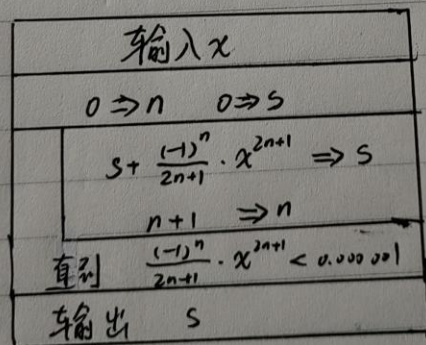 输入x
0⇒n 0⇒s
s+ (-1)^n/2n+1 · x^2n+1 ⇒ s
n+1 ⇒n
直到 (-1)^n/2n+1 · x^2n+1 < 0.000001
输出 s